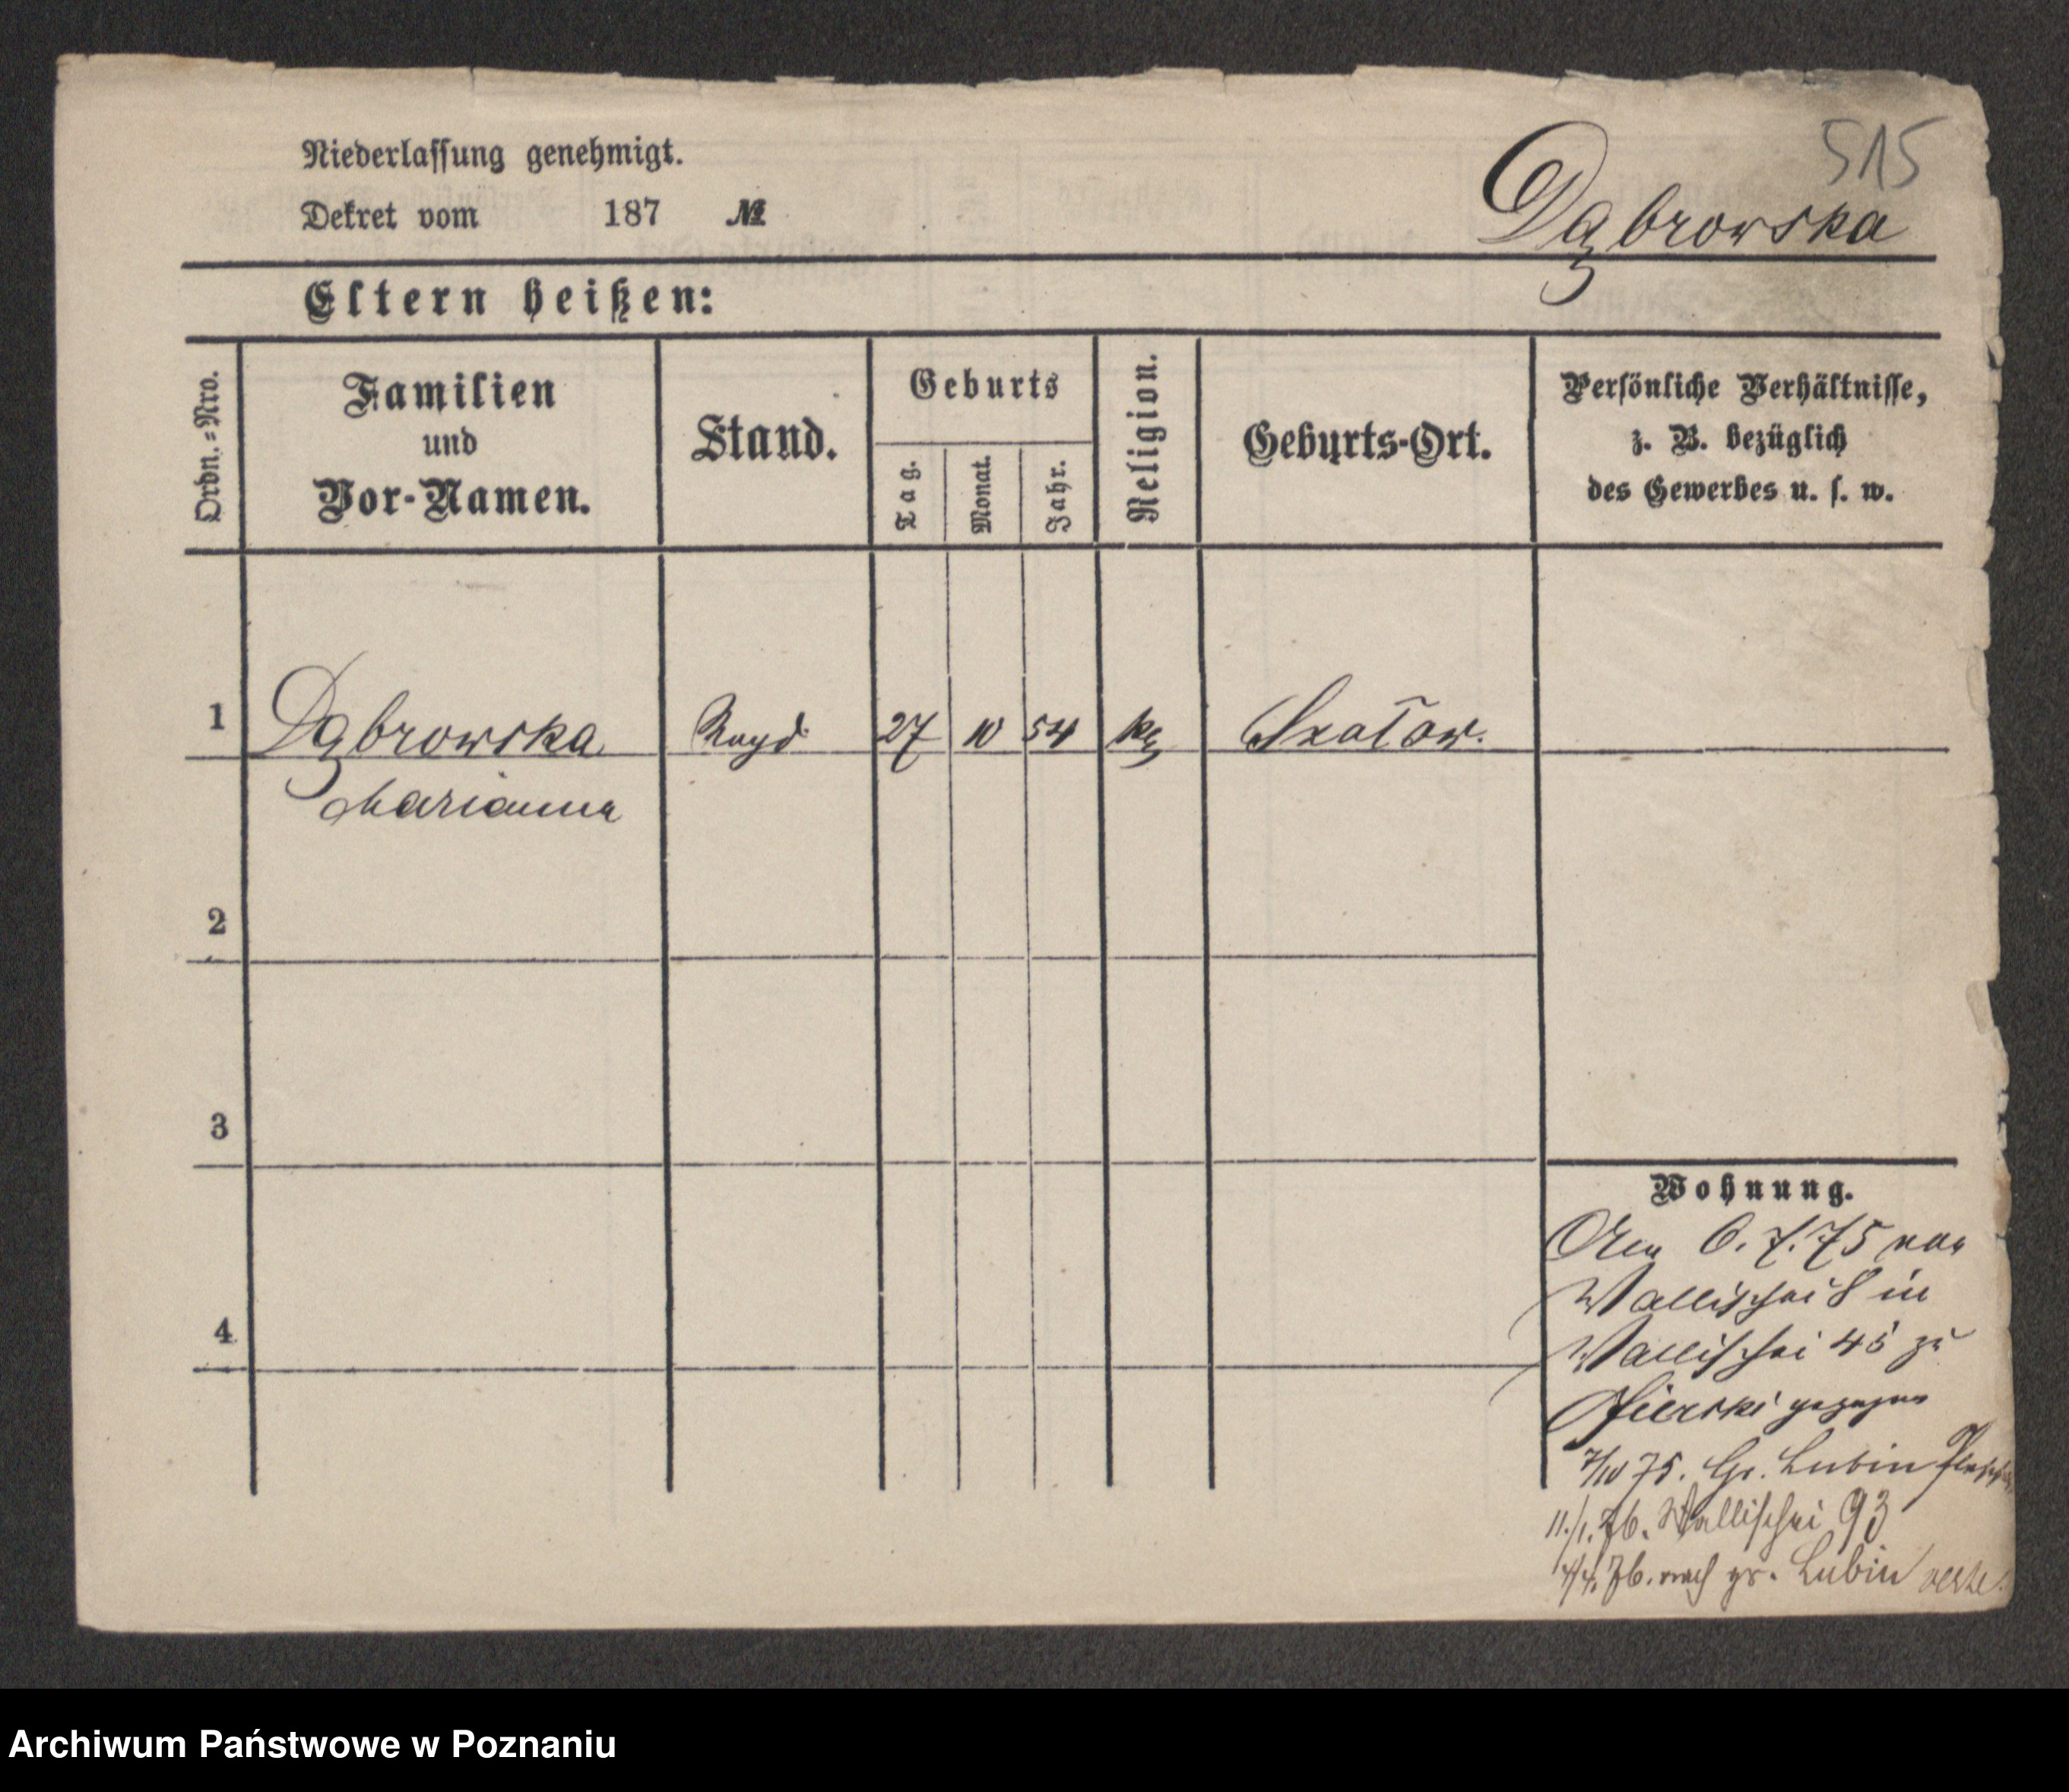 515
Niederlassung genehmigt.
Dekret vom 187 №
Dąbrowska
Eltern heißen:
Ordn.=Nro.
Familien
und
Vor-Namen.
Stand.
Geburts
Tag.
Monat.
Jahr.
Religion.
Geburts-Ort.
Persönliche Verhältnisse,
z. B. bezüglich
des Gewerbes u. s. w.
1 Dąbrowska 27 10 54
Marianna
2
3
4
Wohnung.
6. 7. 75 von
Wallischei 8 in
Wallischei 45 zu
gezogen
7/10 75. Gr. Lubin
11./1. 76. Wallischei 93
4/4. 76. nach gr. Lubin
Archiwum Państwowe w Poznaniu